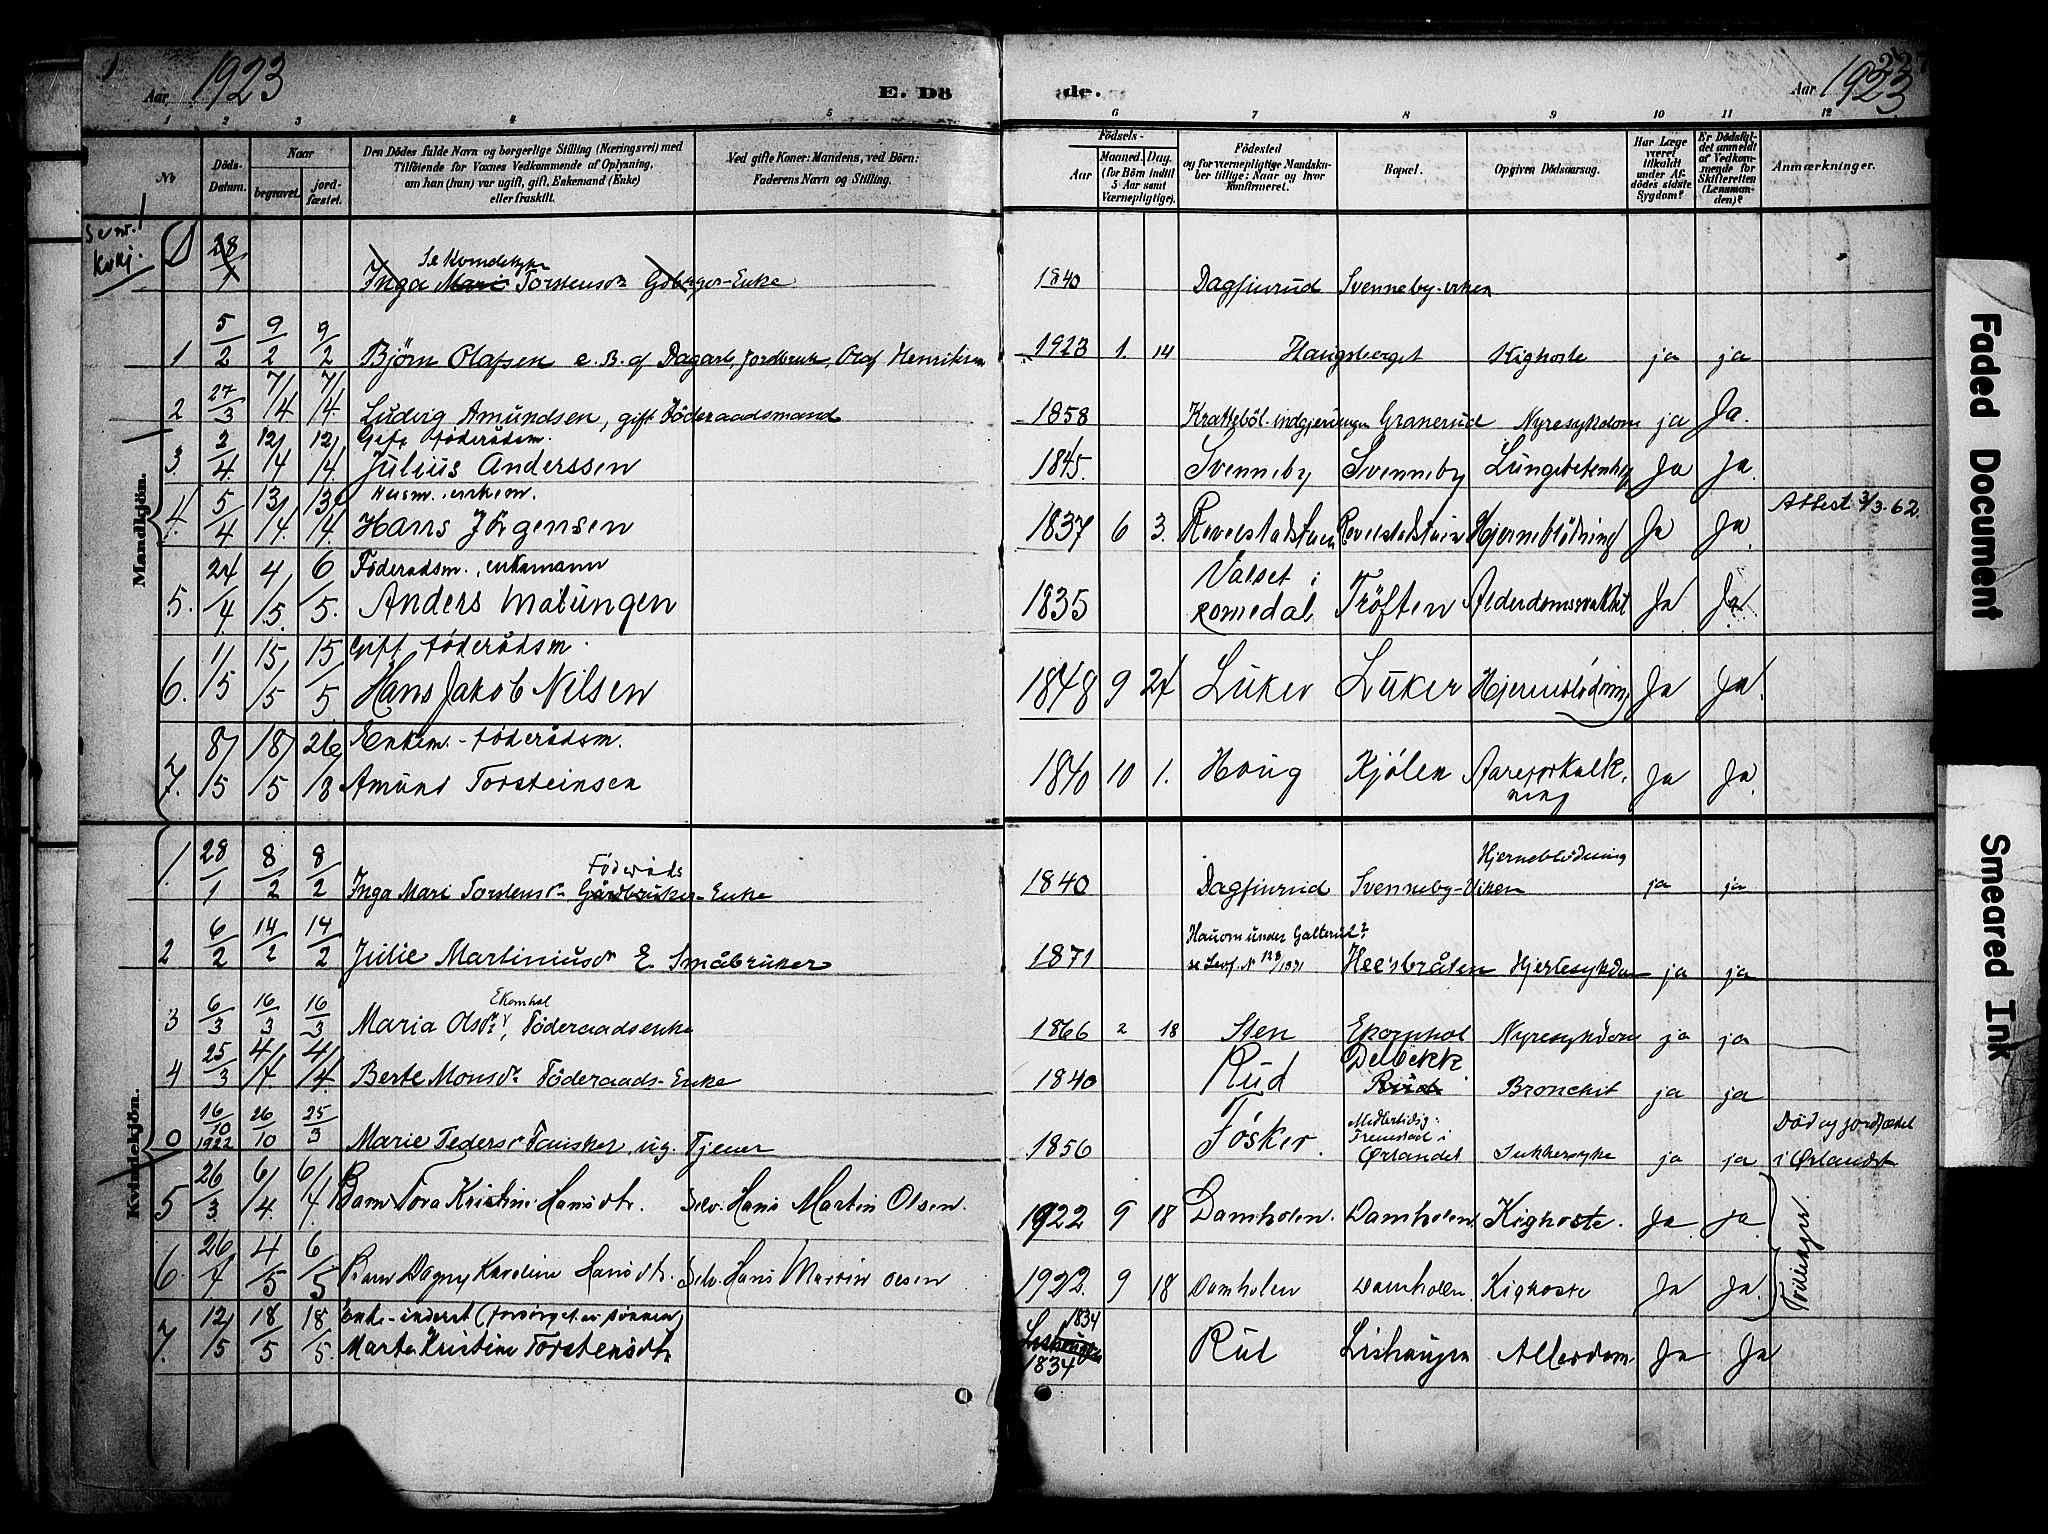 1
Aar 1923
E. Dø
de.
Aar 1923
227
1 2 3 4 5 6 7 8 9 10 11 12
No
Døds-
Datum.
Naar
begravet.
jord-
fæstet.
Den Dødes fulde Navn og borgerlige Stilling (Næringsvei) med
Tilføiende for Voxnes Vedkommende af Oplysning,
om han (hun) var ugift, gift, Enkemand (Enke)
eller fraskilt.
Ved gifte Koner: Mandens, ved Børn:
Faderens Navn og Stilling.
Fødsels-
Aar
Maaned. Dag.
(for Børn indtil
5 Aar samt
Værnepligtige).
Fødested
og for værnepligtige Mandska-
ber tillige: Naar og hvor
konfirmeret.
Bopæl.
Opgiven Dødsaarsag.
Har Læge
været
tilkaldt
under Af-
dødes sidste
Sygdom?
Er Dødsfal-
det anmeldt
af Vedkom-
mende for
Skifteretten
(Lensman-
den)?
Anmærkninger.
Se nr. 1
Kvkj.
28/1 Se Kvindekjø
Inga Mari Torstensdr Enke 1840 Dagfinrud Svenneby-viken
Mandkjön.
1 5/2 9/2 9/2 Bjørn Olafsen e. B. af Dagarb, Jordbruk, Olaf Henriksen 1923 1. 14 Haugsberget Kighoste ja ja
2 27/3 7/4 7/4 Ludvig Amundsen, gift Föderaadsmand 1858 Kratteböl-indgjerdingen Granerud Nyresykdom ja Ja.
Gift föderådsm.
3. 3/4. 12/4 12/4. Julius Anderssen 1845. Svenneby Svenneby Ja Ja.
Husm. enkem.
4. 5/4. 13/4. 13/4. Hans Jörgensen 1837 6 3. Revelstadstuen Revelstadstuen Hjerneblödning Ja Ja. Attest 3/3.62.
Föderadsm., enkemann
5. 24/4 4/5. 6/5. Anders Matüngen 1835 Valset i
Romedal, Tröften Alderdomssvakhet Ja Ja
Gift föderådsm.
6. 1/5 15/5 15/5 Hans Jakob Nilsen 1848 9 24 Lüker Lüker Hjerneblödning Ja Ja.
Enkem.-föderådsm.
7. 8/5 18/5 26/8 Amünd Torsteinsen 1840 10 1. Houg Kjölen Aareforkalk-
ning Ja Ja.
Kvindekjön.
1. 28/1 8/2 8/2 Föderåds
Inga Mari Torstensdr Gårdbruker-Enke 1840 Dagfinrud Svenneby-Viken Hjerneblödning ja ja
2 6/2 14/2 14/2 Julie Martiniusdr E. Småbruker 1871 Hauom under Galterud?
se Levf. N 128/1871 Heersbråten Hjertesykdom ja ja
3 6/3 16/3 16/3 Ekornhol
Maria Olsdr, Föderaadsenke 1866 2 18 Sten Ekornhol Nyresykdom ja ja
4 25/3 4/4 4/4 Berte Monsdr Föderaads-Enke 1840 Rud Delbekk
Rud Bronchit ja ja
0 16/10 1922 26/10 25/3 Marie Pedersdr Fausker, ug. Tjener 1856 Fosker. Midlertidig:
Fremstad i
Ørlandet Sukkersyke ja ja Död og jordfæstet
i Ørlandet
5 26/3. 6/4. 6/4. Barn Tora Kristine Hansdtr. Selv. Hans Martin Olsen. 1922 9 18 Damholen. Damholen. Kighoste. Ja ja.
6. 26/4 4/5 6/5 Barn Dagny Karoline Hansdtr. Selv. Hans Martin Olsen 1922. 9 18 Damholen Damholen. Kighoste Ja Ja. Tvillinger
Enke-inderst (forsörget av sönnen)
7. 12/5 18/5 18/5. Marte Kristine Torstensdtr 1834
1834 Rüd Lishaugen Alderdom Ja Ja
Faded Document
Smeared Ink